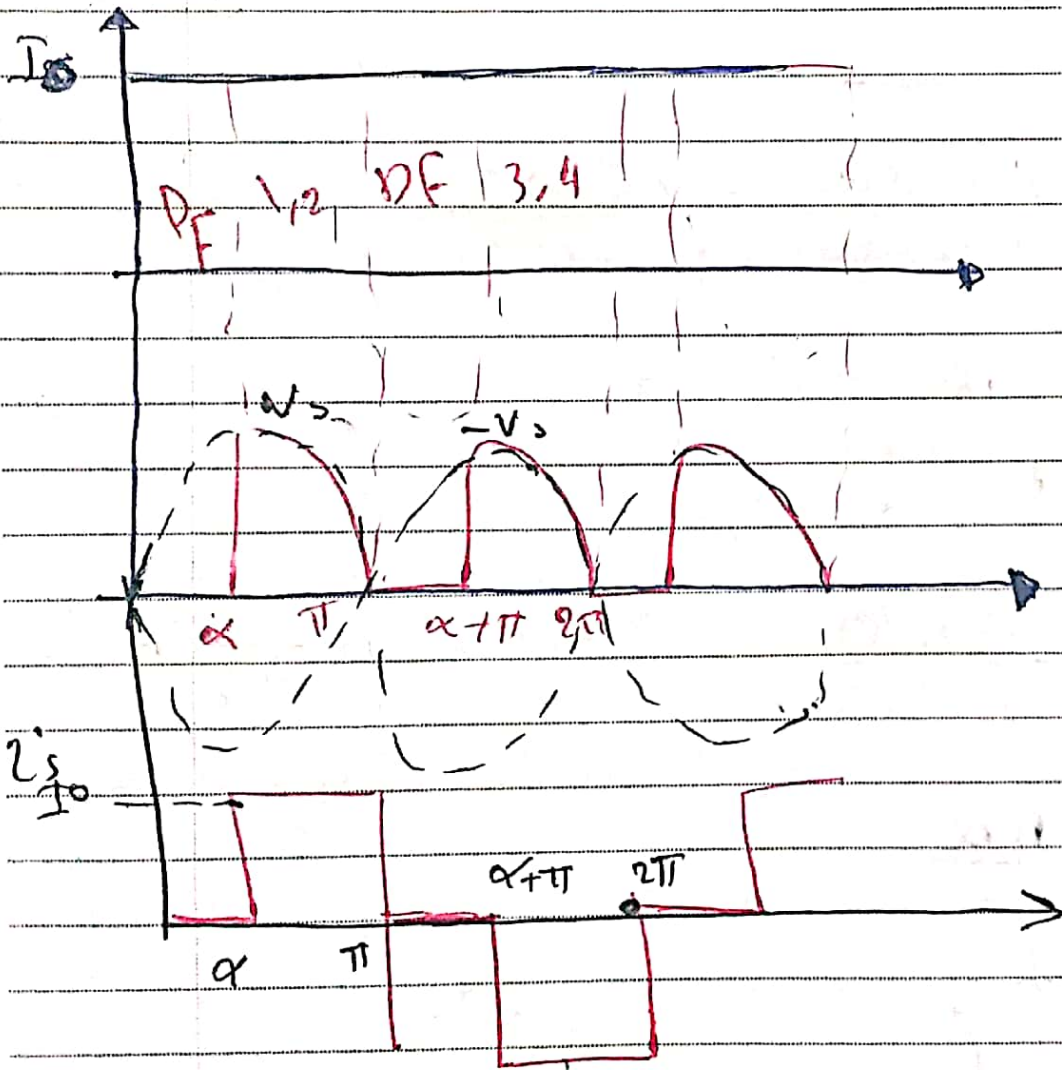 Io
DF 1,2 DF 3,4
Vs -Vs
α π α+π 2π
is
Io
α+π 2π
α π